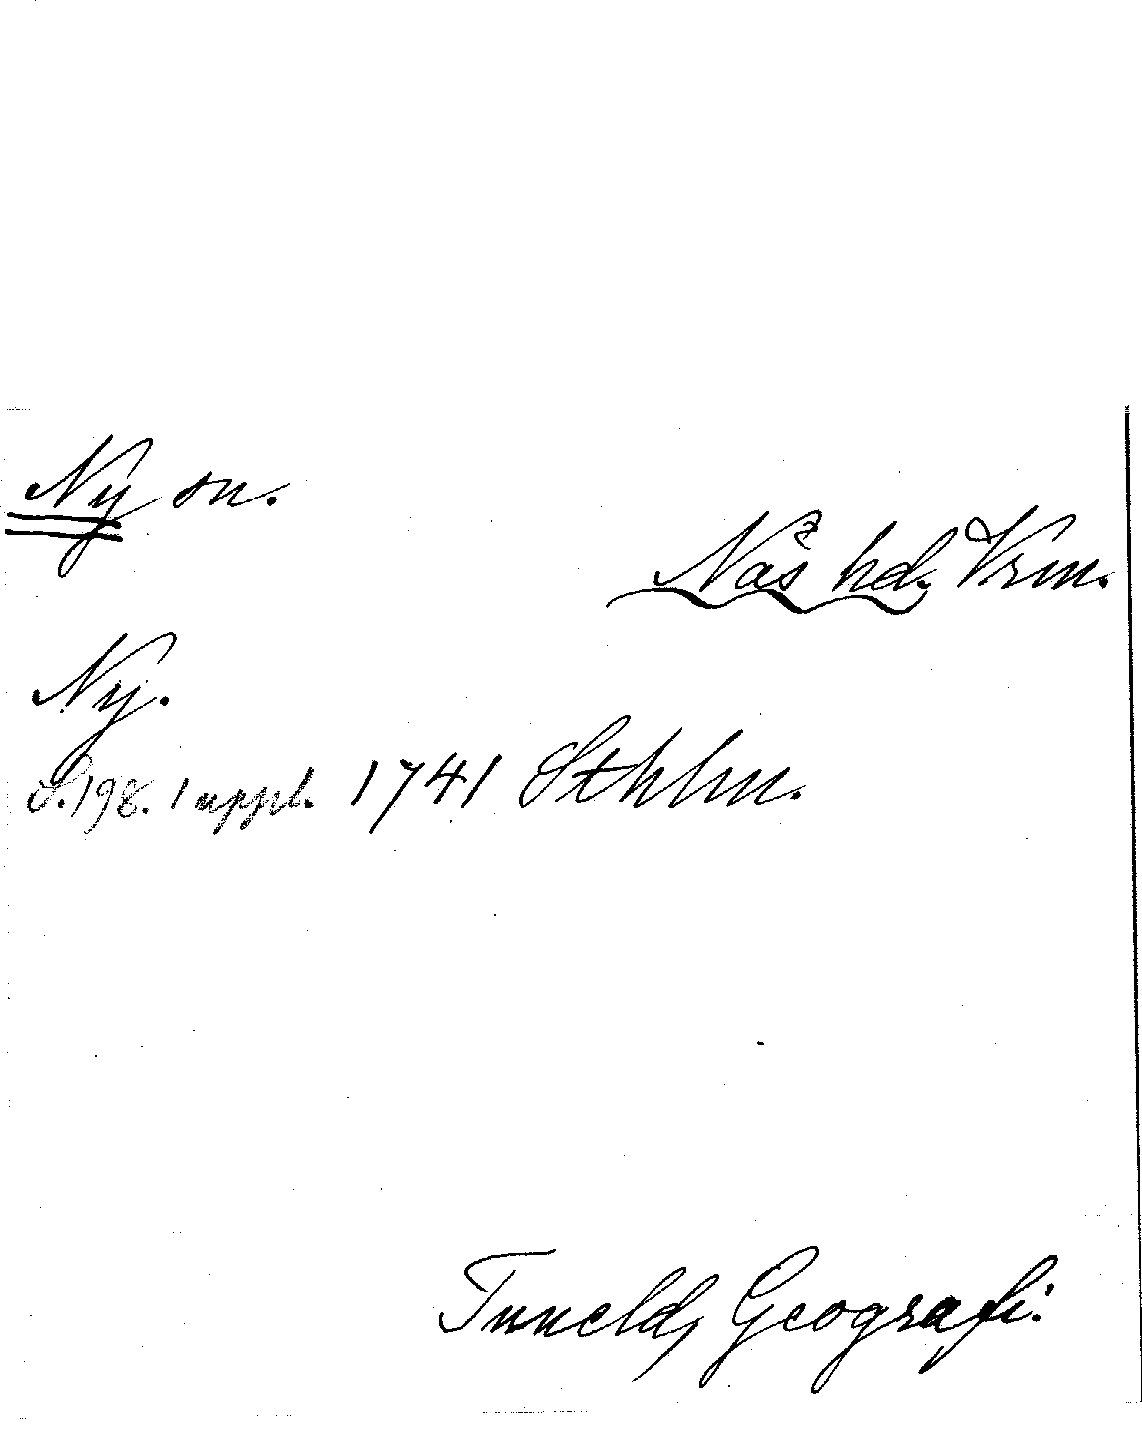 Ny sn.
Näs hd. Vrm.
Ny.
S. 198. 1 uppl. 1741 Sthlm.
Tuneld, Geografi.